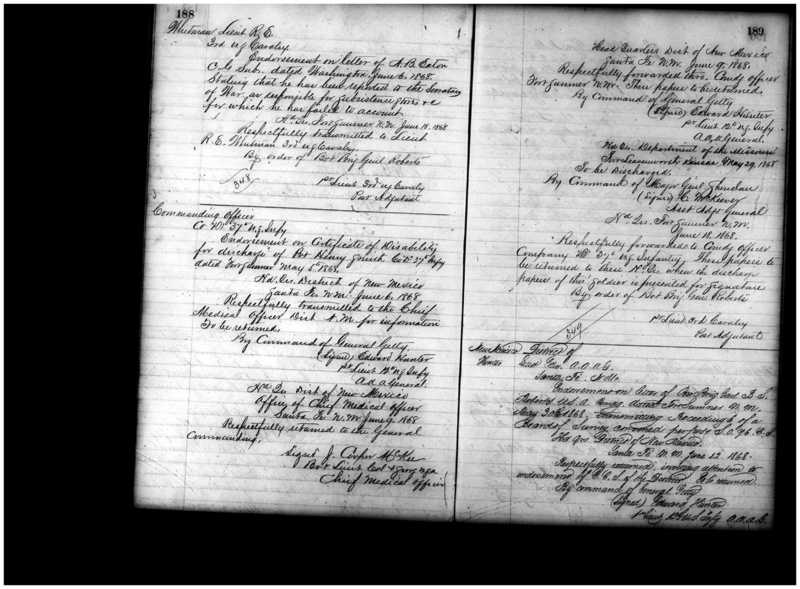 188
Whitman Lieut R. E.
3rd U.S. Cavalry
Endorsement on letter of A. B. Eaton
C. G. Sub. dated Washington June 6. 1868.
Stating that he has been reported to the Secretary
of War as responsible for subsistence stores &c
for which he has failed to account.
Hd Qrs. Fort Sumner N. M. June 18. 1868
Respectfully transmitted to Lieut
R. E. Whitman 3rd U.S. Cavalry
By order of Bvt Brig Genl Roberts
348
1st Lieut 3rd U.S. Cavalry
Post Adjutant
Commanding Officer
Co 37" U.S. Infy
Endorsement on Certificate of Disability
for discharge of Pvt Henry Co 37" Infy
dated Fort Sumner May 1868.
Hd. Qrs. District of New Mexico
Santa Fe N.M. June 6. 1868
Respectfully transmitted to the Chief
Medical Officer Dist N. M. for information
To be returned
By Command of General Getty.
(Signed) Edward Hunter
1st Lieut 12" U.S. Infy
A.A.A. General.
Hd Qrs Dist of New Mexico
Office of Chief Medical Officer
Santa Fe N.M. June 9. 1868
Respectfully returned to the General
Commanding.
Signed J. Cooper McKee
Bvt Lieut Col & Surg
Chief Medical Officer
189
Head Quarters Dist of New Mexico
Santa Fe N.M. June 9. 1868.
Respectfully forwarded thro. Comdg Officer
Fort Sumner N.M. These papers to be returned.
By Command of General Getty
(Signed) Edward Hunter
1st Lieut 12" U.S. Infy
A.A.A. General.
Hd Qrs. Department of the Missouri
Fort Leavenworth Kansas May 29. 1868
To be Discharged.
By Command of Major Genl Sheridan
(Signed) C. McKeever
Asst Adjt General
Hd Qrs. Fort Sumner N.M.
June 18. 1868.
Respectfully forwarded to Comdg Officer
Company 37" U.S. Infantry. These papers to
be returned to these Hd Qrs when the discharge
papers of this soldier is presented for signature
By order of Bvt Brig Genl Roberts
349
1st Lieut 3rd Cavalry
Post Adjutant
New Mexico District of
Hunter A.A.A.G.
Santa Fe N. M.
Endorsement on letter of Bvt Brig Genl B. S.
Roberts U.S.A. Comdg. dated Ft Sumner N. M.
May 30th 1868. Transmitting Proceedings of a
Board of Survey convened per par S.O. 96 C.S.
Hd Qrs District of New Mexico
Santa Fe N. M. June 12. 1868.
Respectfully returned, inviting attention to
endorsement of C.C.S. of the District. To be returned
By command of General Getty
(Signed) Edward Hunter
1st Lieut 12th U.S. Infy A.A.A.G.